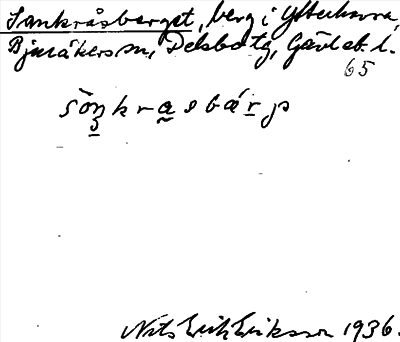 Sankråsberget, berg i Ytterhavra,
Bjuråkers sn, Delsbo tg, Gävleb. l.
65
sòn̲kra̲sbár̲p
Nils Erik Eriksson 1936.